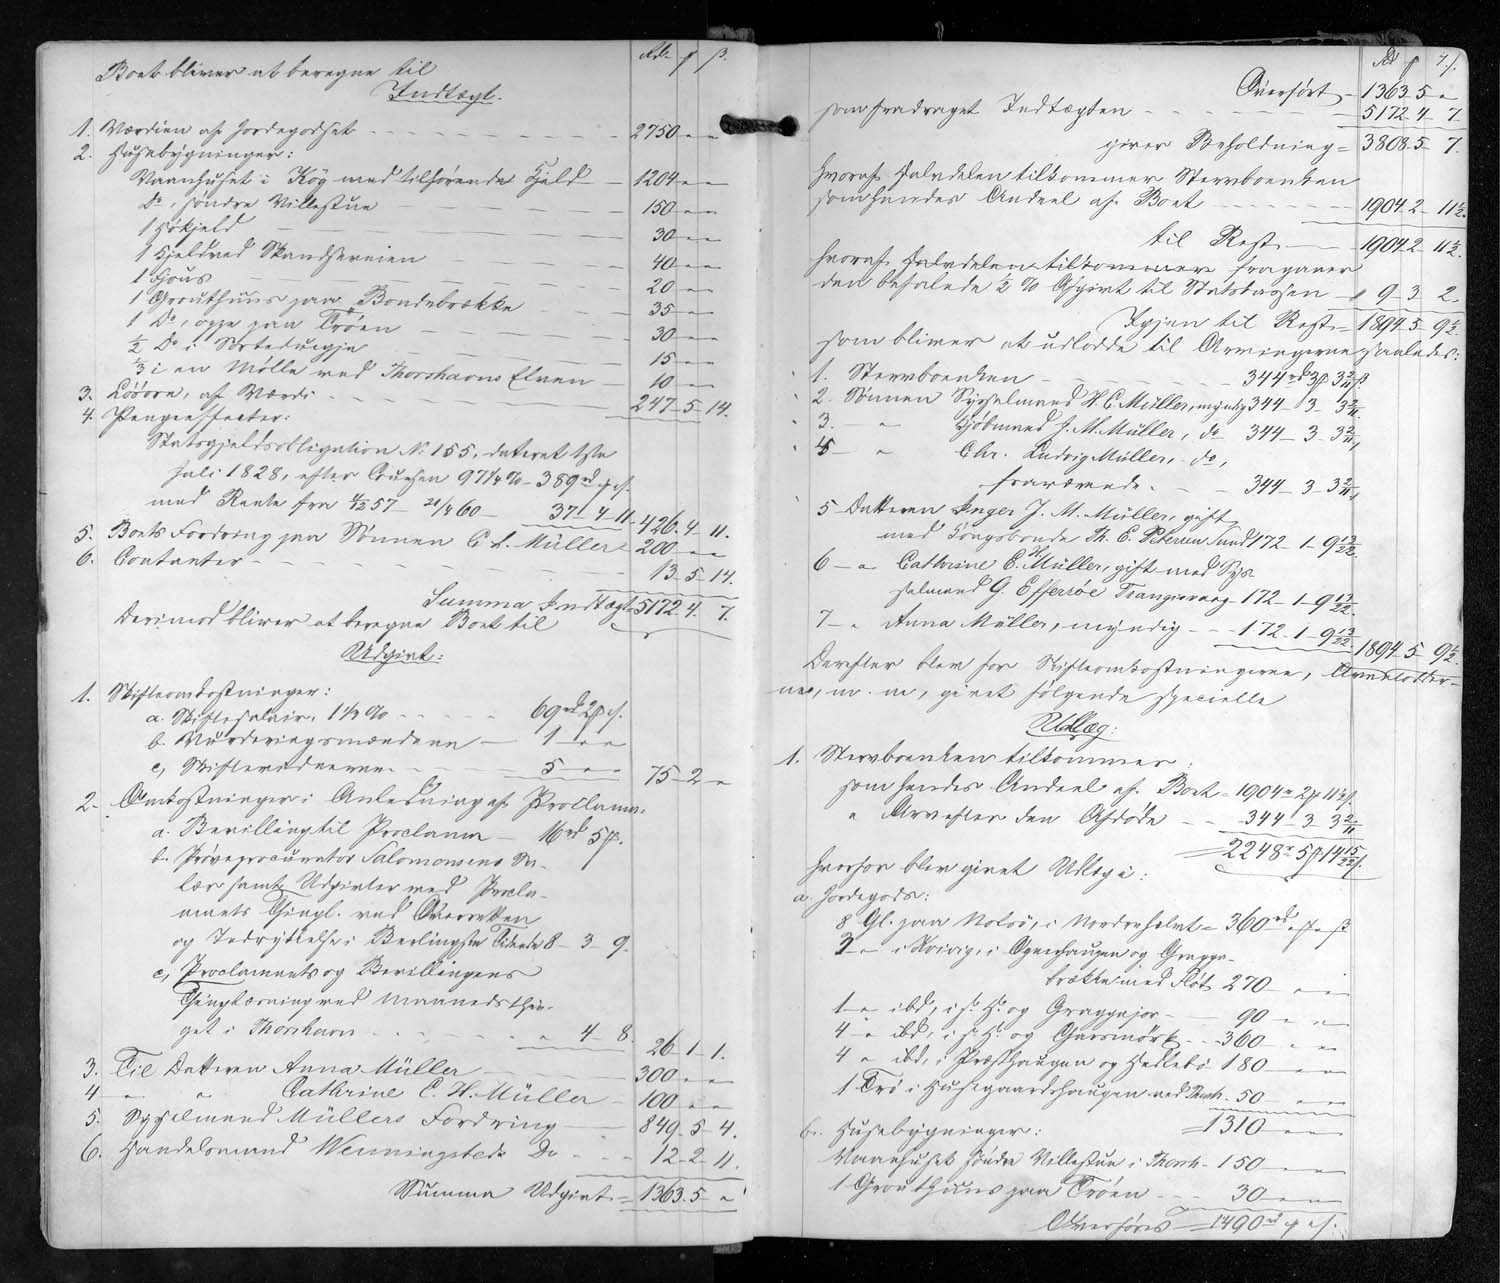 Rd. ꝑ ß.
Boet bliver at beregne til
Indtægt.
1. Værdien af Jordegodset - - - 2750 - " - "
2. Husebygninger:
Vaanhuset i Kög med tilhørende Hjeld - 1204 - " - "
Do, søndre Villestue - 150 - " - "
1 - 30 - " - "
1 Hjeld ved Skandsereien - 40 - " - "
1 - 20 - " - "
1 Grouthuus paa Bondebrække - 35 - " - "
1 Do, oppe paa Trøen - 30 - " - "
½ Do i - 15 - " - "
⅓ i en Mølle ved Thorshavns Elven - 10 - " - "
3. Løsøre, af Værdi - 247 - 5 - 14.
4. Penge
Statsgjeldsobligation No 155, dateret 1ste
Juli 1828, efter Coursen 97¼% - 389 rd " ꝑ " ß.
med Rente fra 11/12 57 - 21/4 60 - 37 - 4 - 11. 426. 4 - 11.
5. Boets Fordring paa Sønnen C. L. Müller 200 - " - "
6. Contanter - 13 - 5 - 14.
Summa Indtægt 5172. 4. 7.
Derimod bliver at beregne Boet til
Udgivt:
1. Skifteomkostninger:
a. Skiftesalair, 1⅓% - 69 rd 2 ꝑ " ß.
b. Vurderingsmændene - 1 - " - "
c, - 5 - " - " 75 - 2 - "
2. Omkostninger i Anledning af Proclama:
a. Bevilling til Proclama - 16 rd 5 ꝑ.
b. Prøveprocurator Salomonsens Sa-
lær samt Udgivter ved Procla-
mates Thingl. ved Overretten
og Indrykkelse i Berlingske Tidende 8 - 3 - 9.
c, Proclamaets og Bevillingens
Thinglæsning ved Maanedsthin-
get i Thorshavn - " - 4 - 8. 26 - 1 - 1.
3. Til Datteren Anna Müller - 300 - " - "
4 - " - " Cathrine C. H. Müller - 100 - " - "
5. Sysselmand Müllers Fordring - 849 - 5 - 4.
6. Handelsmand Wenningsteds Do - 12 - 2 - 11.
Summa Udgivt = 1363. 5 - "
Rd ꝑ ß.
Overført - 1363. 5 - "
som fradraget Indtægten - 5172. 4 - 7
giver Beholdning = 3808. 5 - 7.
hvoraf Halvdelen tilkommer Stervboenken
som hendes Andeel af Boet - 1904. 2 - 11½.
til Rest - 1904. 2 - 11½.
hvoraf Halvdelen tilkommer fragaaer
den befalede ½ % Afgivt til Statskassen - 9 - 3 2.
Igjen til Rest = 1894. 5 - 9½.
som bliver at udlodde til Arvingerne saaledes:
1. Stervboenken - 344 rd 3 ꝑ 3 2/11 ß
2. Sønnen Sysselmand H. C. Müller, myndig 344 - 3 - 3 2/11
3. - " Kjøbmand J. M. Müller, do 344 - 3 - 3 2/11,
4 - " Chr. Ludvig Müller, do,
fraværende. - 344 - 3 - 3 2/11,
5 - Datteren Inger J. M. Müller, gift
med Kongsbonde Th. C. Petersen Sund 172 - 1 - 9 13/22.
6 - " Cathrine C. H. Müller, gift med Sys-
selmand G. Effersöe Trangisvaag - 172 - 1 - 9 13/22.
7 - " Anna Müller, myndig - 172 - 1 - 9 13/22. 1894. 5 - 9½.
Derefter blev for Skifteomkostningerne, Arvelodder-
ne, m. m, givet følgende specielle
Udlæg:
1. Stervboenken tilkommer:
som hendes Andeel af Boet = 1904 rd 2 ꝑ 11½ ß.
" Arv efter den Afdøde - 344 - 3 3 2/11
= 2248 rd 5 ꝑ 14 15/22 ß.
hvorfor blev givet Udlæg i:
a. Jordegods:
8 Gl. paa Nolsö, i Nordreholmt = 360 rd " ꝑ " ß
3 - " i Kviviig, i Ogenhaugen og Gragge-
brække med Fløt 270 - " - "
1 - " ibd, i S. H. og Graggejor - 90 - " - "
4 - " ibd, i S. H. og Garsmörk - 360 - " - "
4 " ibd, i Præsthaugen og 180 - " - "
1 Trø i Husegaardshaugen ved Thorsh. 50 - " - "
= 1310 - " - "
b. Husebygninger:
Vaanhuset søndre Villestue i Thorsh - 150 - " - "
1 Grouthuus paa Trøen - 30 - " - "
Overføres = 1490 rd " ꝑ " ß.